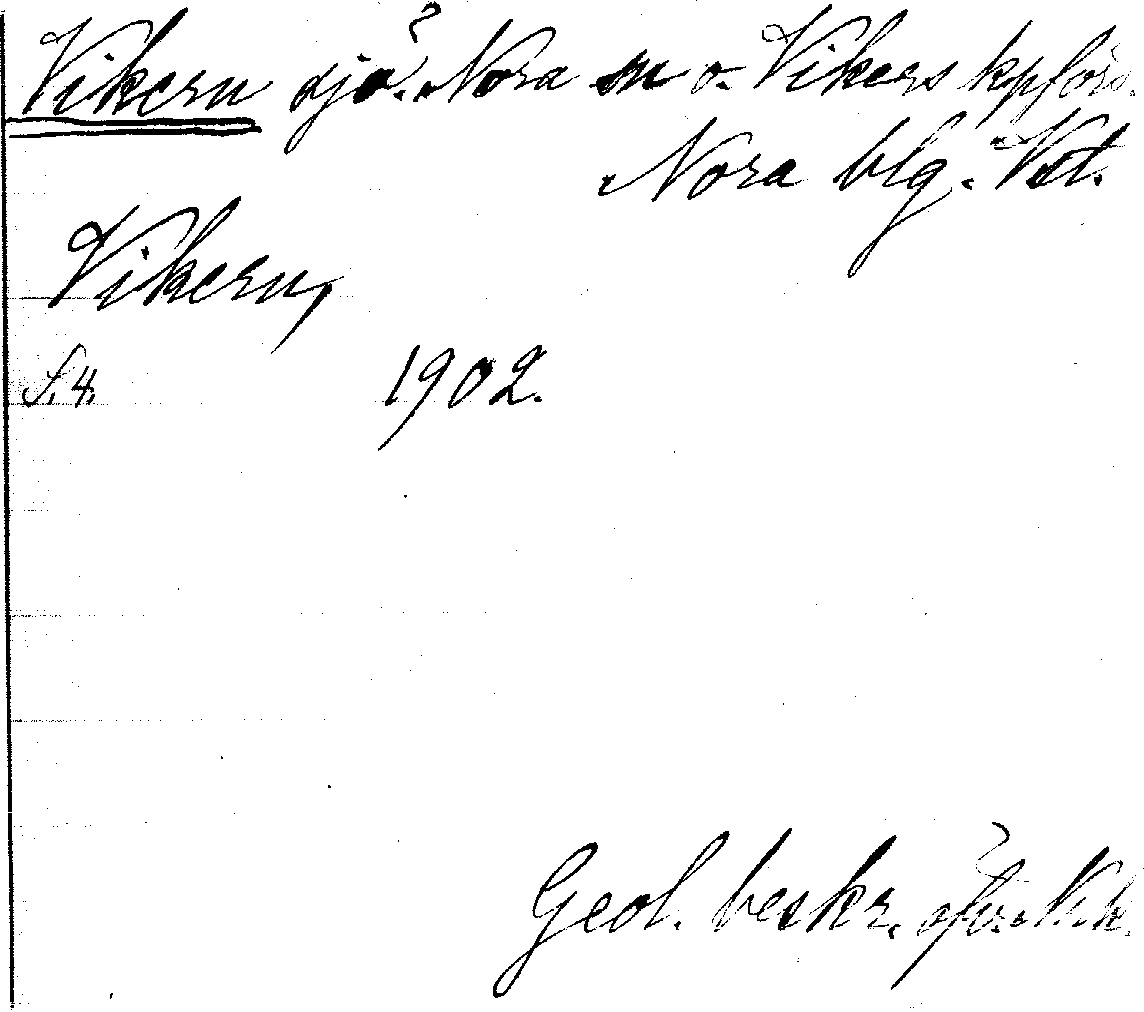 Vikern sjö. Nora sn o. Vikers kpförs.
Nora blg. Vstl.
Vikern,
S. 4. 1902.
Geol. beskr. öfv. N. b.